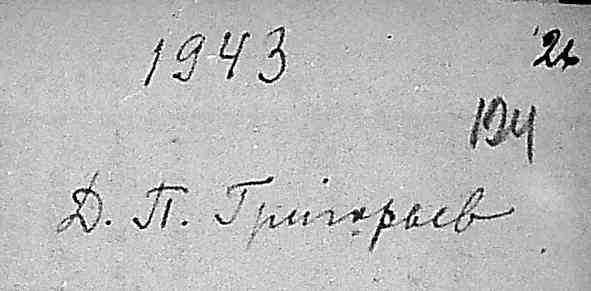 1943
26
124
Д. П. Григорьев